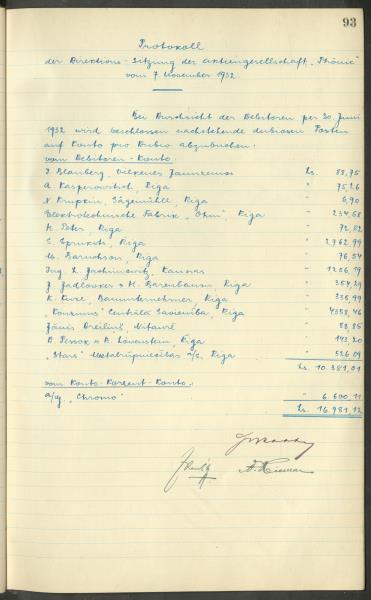 93
Protokoll
der Direktions-Sitzung der Aktiengesellschaft "Phönix"
vom 7 November 1932
Bei Durchsicht der Debitoren per 30. Juni
1932 wird beschlossen nachstehende dubiosen Posten
auf Konto pro Dubio abzubuchen:
vom Debitoren-Konto:
Ls. 88,75
A. Kasperowitsch, Riga " 75,26
N Krupkin, Sägemühle, Riga " 6,90
Elektrotechnische Fabrik "Ohm", Riga " 234,68
H. Peter, Riga " 72,82
Riga " 2762,99
M. Barnehson, Riga " 76,54
Ing. L. Jachimowitz, Kaunas " 1256,19
J Jadlowker & H. Barenbaum, Riga " 354,29
K. Kurl, Bauunternehmer, Riga " 335,99
"Konzums" Centrālā Savienība, Riga " 4358,46
Jānis Breiliņš, Nitaurē " 88,85
B Pessox & A. Löwenstein, Riga " 143,20
"Stars" Metalrūpniecības a/s, Riga " 526,09
Ls. 10.381,01
vom Konto-Korrent-Konto:
a/g "Chromo" " 6.600,11
Ls. 16.981,12